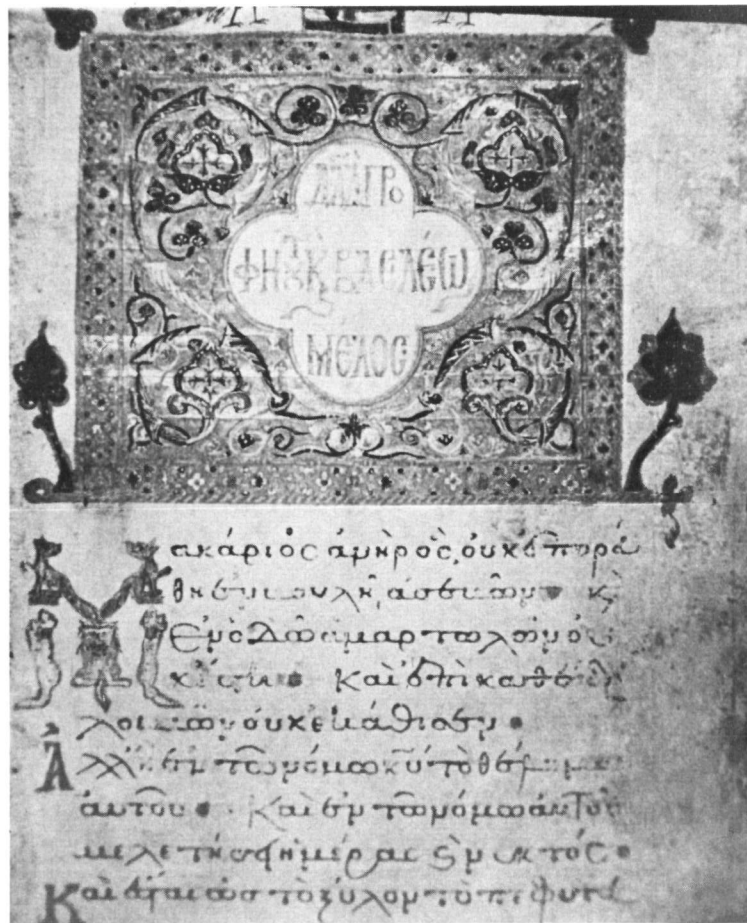 ΔΑΔ ΠΡΟ
ΦΗΤΟΥ Κ ΒΑCΙΛΕΩ
ΜΕΛΟC
Μακάριος ἀνὴρ ὃς οὐκ ἐπορεύ
θη ἐν βουλῆ ἀσεβῶν · κ
ἐν ὁδῶ ἁμαρτωλῶν οὐ
κ ἔστη · Καὶ ἐπὶ καθέδ
λοιμῶν οὐκ ἐκάθισεν ·
Ἀλλ ἢ ἐν τῶ νόμω κυ τὸ θέλημα
αὐτοῦ · Καὶ ἐν τῶ νόμω αὐτοῦ
μελετήσει ἡμέρας ϗ νυκτός ·
Καὶ ἔσται ὡς τὸ ξύλον τὸ πεφυτε